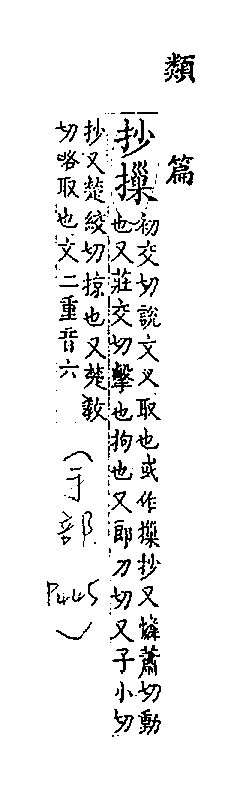 類篇
抄摷
初交切說文叉取也或作摷抄又憐蕭切動
也又莊交切擊也拘也又郎刀切又子小切
抄又楚絞切掠也又楚教
切略取也文二重音六
(手部
P445)